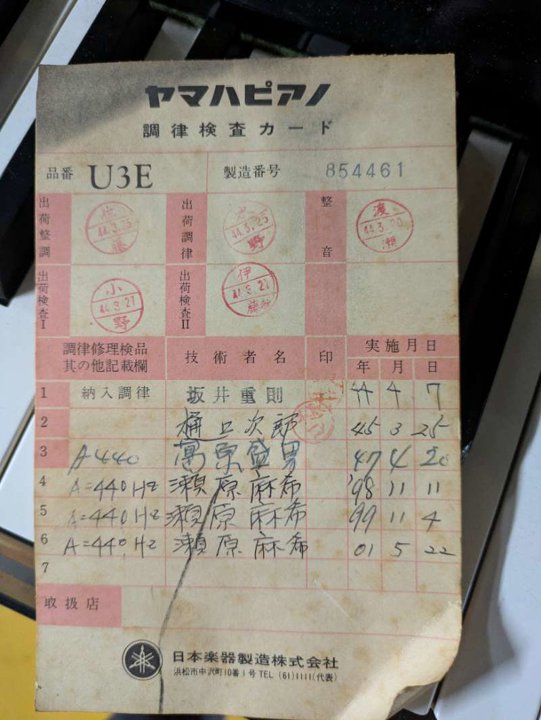 ヤマハピアノ
調律検査カード
品番 U3E 製造番号 854461
出荷整調 44.3.25 出荷調律 44.3.25 野 整音 渡瀬
出荷検査I 小野 44.3.27 出荷検査II 伊藤 44.3.27
調律修理検品其の他記載欄 技術者名 印 実施月日
年 月 日
1 納入調律 坂井重則 44 4 7
2 樋口次郎 45 3 25
3 A-440 原盛男 47 4 20
4 A=440Hz 瀬原麻希 '98 11 11
5 A=440Hz 瀬原麻希 '99 11 4
6 A=440Hz 瀬原麻希 01 5 22
7
取扱店
日本楽器製造株式会社
浜松市中沢町10番1号 TEL (61)1111(代表)